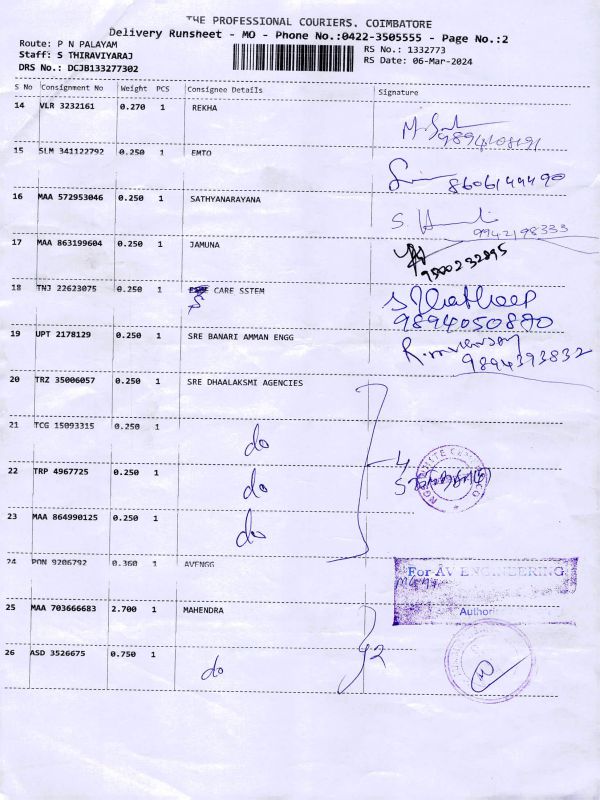 THE PROFESSIONAL COURIERS, COIMBATORE
Delivery Runsheet - MO - Phone No.:0422-3505555 - Page No.:2
Route: P N PALAYAM
RS No.: 1332773
Staff: S THIRAVIYARAJ
RS Date: 06-Mar-2024
DRS No.: DCJB133277302
S No Consignment No Weight PCS Consignee Details Signature
14 VLR 3232161 0.270 1 REKHA
9894108191
15 SLM 341122792 0.250 1 EMTO
8606144490
16 MAA 572953046 0.250 1 SATHYANARAYANA
9942198333
17 MAA 863199604 0.250 1 JAMUNA
9500232895
18 TNJ 22623075 0.250 1 CARE SSTEM
S
9894050870
19 UPT 2178129 0.250 1 SRE BANARI AMMAN ENGG
9894393832
20 TRZ 35006057 0.250 1 SRE DHAALAKSMI AGENCIES
21 TCG 15093315 0.250 1 do
22 TRP 4967725 0.250 1 do
4
23 MAA 864990125 0.250 1 do
24 PON 9206792 0.360 1 AVENGG
For AV ENGINEERING
25 MAA 703666683 2.700 1 MAHENDRA
Author
26 ASD 3526675 0.750 1 do
2